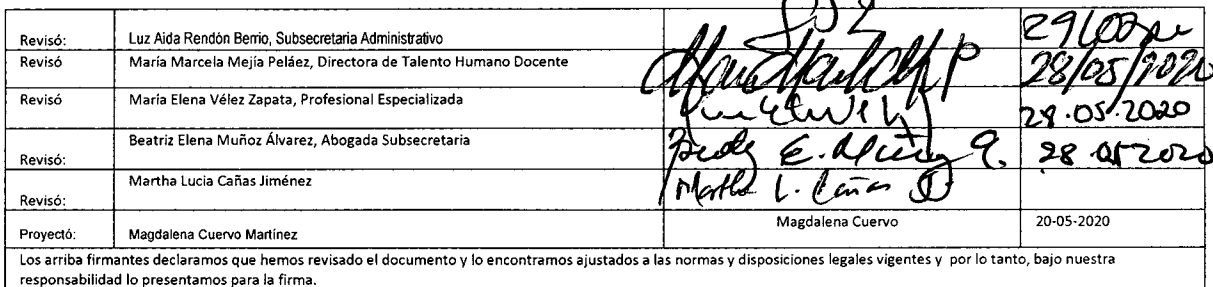 Revisó: Luz Aida Rendón Berrio, Subsecretaria Administrativo
Revisó María Marcela Mejía Peláez, Directora de Talento Humano Docente 28/05/2020
Revisó María Elena Vélez Zapata, Profesional Especializada 28.05.2020
Revisó: Beatriz Elena Muñoz Álvarez, Abogada Subsecretaria 28.05.2020
Revisó: Martha Lucia Cañas Jiménez Martha L. Cañas J
Proyectó: Magdalena Cuervo Martínez Magdalena Cuervo 20-05-2020
Los arriba firmantes declaramos que hemos revisado el documento y lo encontramos ajustados a las normas y disposiciones legales vigentes y por lo tanto, bajo nuestra
responsabilidad lo presentamos para la firma.